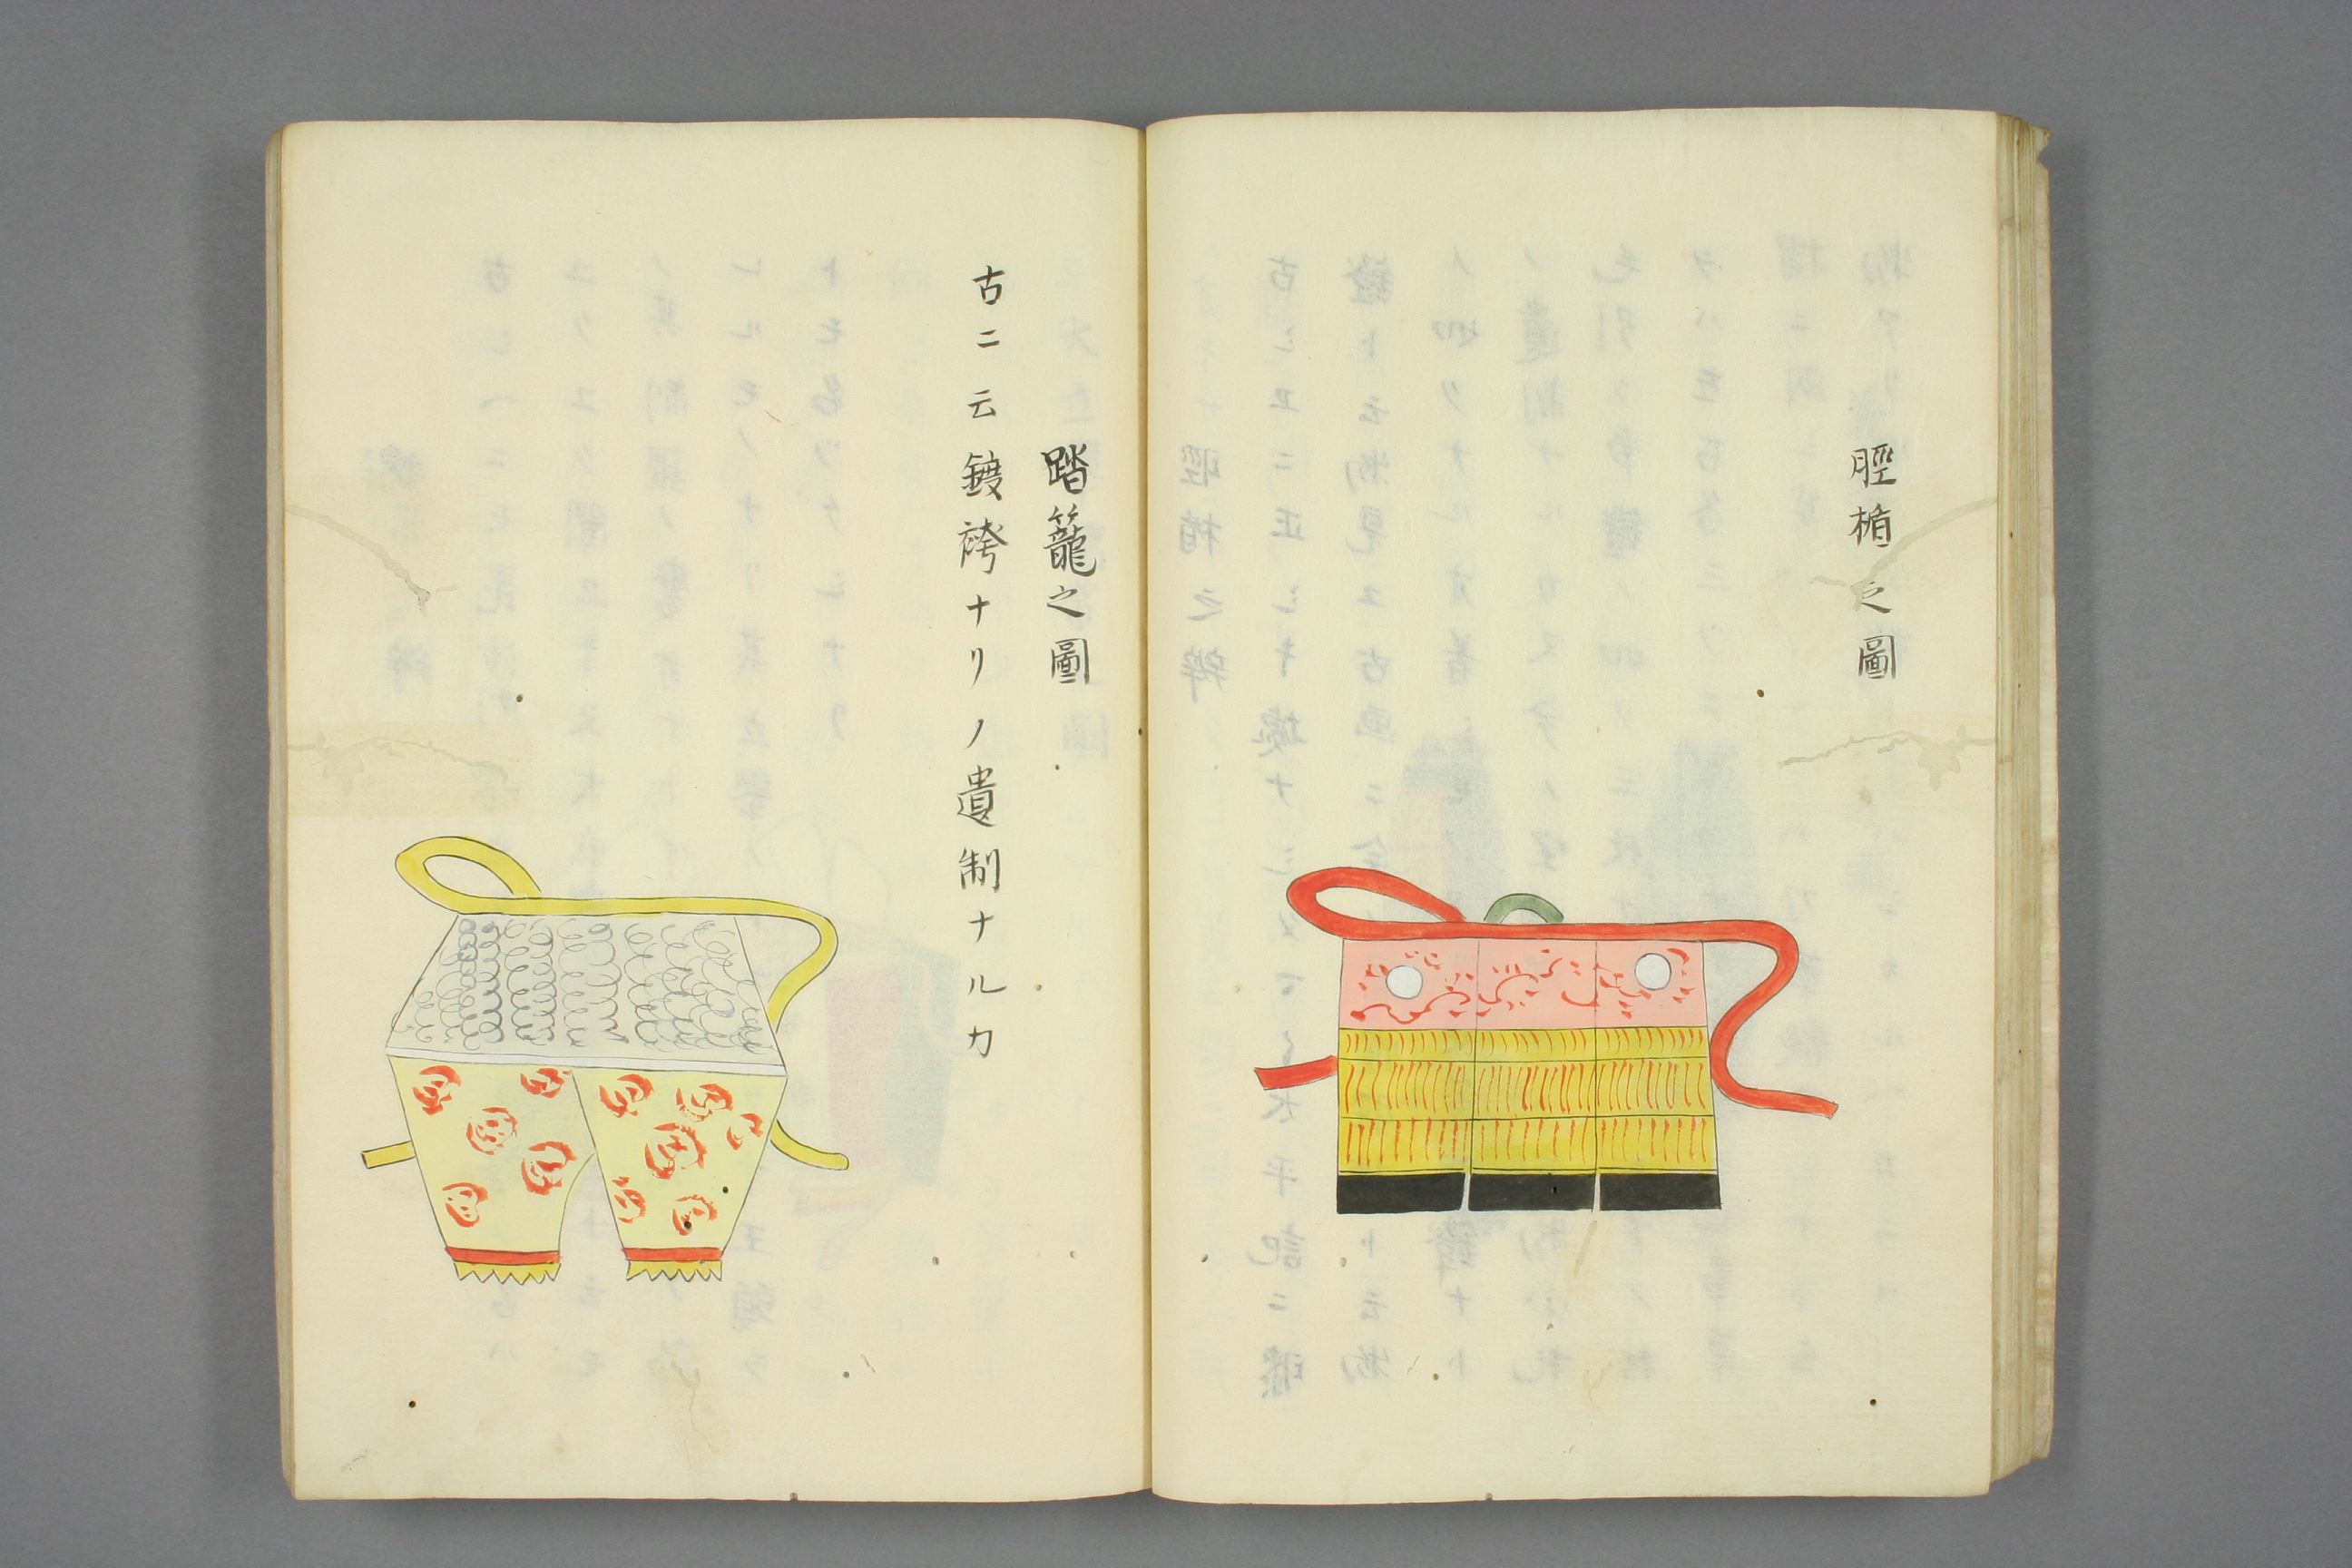 脛楯之圖
踏籠之圖
古ニ云鍍袴ナリノ遺制ナルカ